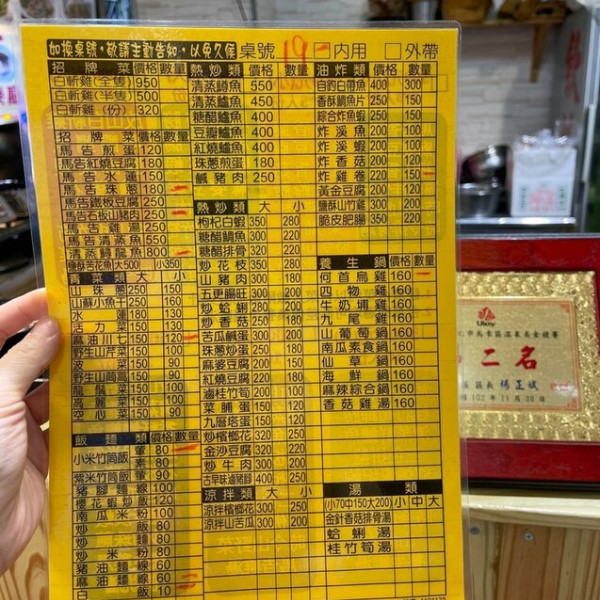 如換桌號,敬請主動告知,以免久候 桌號 19 內用 □外帶
招牌菜 價格 數量
白斬雞(全隻) 950
白斬雞(半隻) 500
白斬雞(份) 320
招牌菜 價格 數量
馬告煎蛋 120
馬告紅燒豆腐 180
馬告水蓮 150
馬告珠蔥 180
馬告鐵板豆腐 250
馬告石板山豬肉 250
馬告雞湯 250
馬告清蒸魚 550
清蒸鱘龍魚 800
鹽酥苦花魚 大500 小350
青菜類 大 小
山枝尾 250 150
山蘇小魚干 250 160
水蓮 180 130
活力菜 150 130
麻油川七 150 120
野生山芹菜 150 100
波菜 150 90
野生山茼蒿 150 90
龍鬚菜 150 100
高麗菜 150 100
空心菜 150 90
飯麵類 價格 數量
小米竹筒飯 葷 80
素 80
紫米竹筒飯 葷 90
豬腳麵線 100
櫻花蝦炒飯 120
南瓜米粉 100
炒飯 80
炒麵 80
炒米粉 80
豬油麵線 60
麻油麵線 60
白飯 10
熱炒類 價格 數量
清蒸鱒魚 550
清蒸鱸魚 450
糖醋鱸魚 400
豆瓣鱸魚 400
紅燒鱸魚 400
珠蔥煎蛋 180
鹹豬肉 250
熱炒類 大 小
枸杞白蝦 350 280
糖醋鯛魚 300 220
糖醋排骨 300 220
炒花枝 350 280
山豬肉 350 280
五更腸旺 300 200
炒蛤蜊 280 200
炒香菇 250 180
苦瓜鹹蛋 300 200
珠蔥炒蛋 280 180
麻婆豆腐 200 150
紅燒豆腐 220 150
滷桂竹筍 200 150
菜脯蛋 150 120
九層塔蛋 150 120
炒檳榔花 320 250
金沙豆腐 320 220
炒牛肉 300 200
古早味滷豬腳 300 200
涼拌類 大 小
涼拌檳榔花 300 250
涼拌山苦瓜 300 200
油炸類 價格 數量
自釣白帶魚 400 300
香酥鯛魚片 250 150
綜合炸魚蝦 250 150
炸溪魚 200 150
炸溪蝦 200 150
炸香菇 220 150
炸雞卷 220 150
黃金豆腐 200 150
鹽酥山竹雞 300 200
脆皮肥腸 350 220
養生鍋 價格 數量
何首烏雞 160
四物雞 160
牛奶埔雞 160
九尾雞 160
山葡萄鍋 160
南瓜素食鍋 160
仙草鍋 160
海鮮鍋 160
麻辣綜合鍋 160
香菇雞湯 160
湯類
(小70中150大200) 小 中 大
金針香菇排骨湯
蛤蜊湯
桂竹筍湯
Ulay
二名